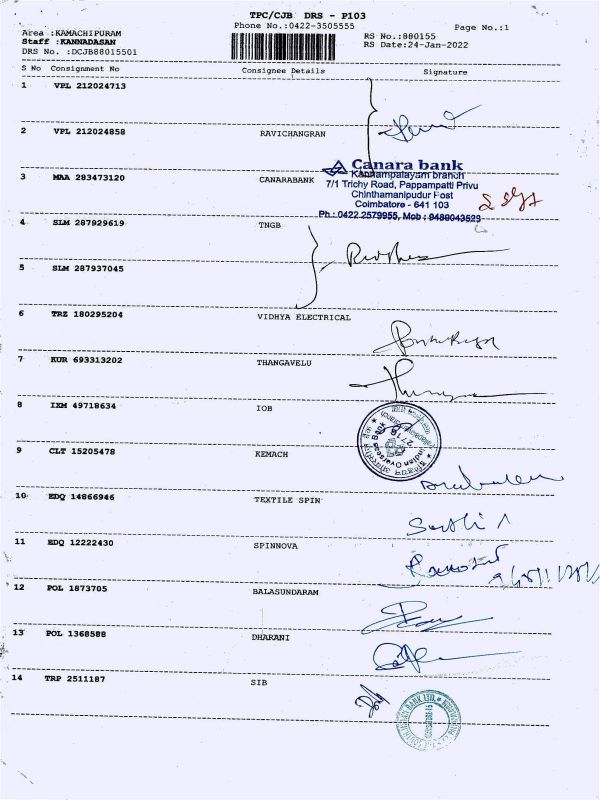 TPC/CJB DRS - P103
Phone No.:0422-3505555
Page No.:1
Area :KAMACHIPURAM
RS No.:880155
Staff :KANNADASAN
RS Date:24-Jan-2022
DRS No. :DCJB88015501
S No Consignment No Consignee Details Signature
1 VPL 212024713
2 VPL 212024858 RAVICHANGRAN
Canara bank
Kannampalayam branch
3 MAA 283473120 CANARABANK
7/1 Trichy Road, Pappampatti Privu
Chinthamanipudur Post
Coimbatore - 641 103
Ph : 0422 2579955, Mob : 9489043523
4 SLM 287929619 TNGB
5 SLM 287937045
6 TRZ 180295204 VIDHYA ELECTRICAL
7 KUR 693313202 THANGAVELU
8 IXM 49718634 IOB
Indian Overseas Bank
2718
9 CLT 15205478 KEMACH
10 EDQ 14866946 TEXTILE SPIN
11 EDQ 12222430 SPINNOVA
12 POL 1873705 BALASUNDARAM
13 POL 1368588 DHARANI
14 TRP 2511187 SIB